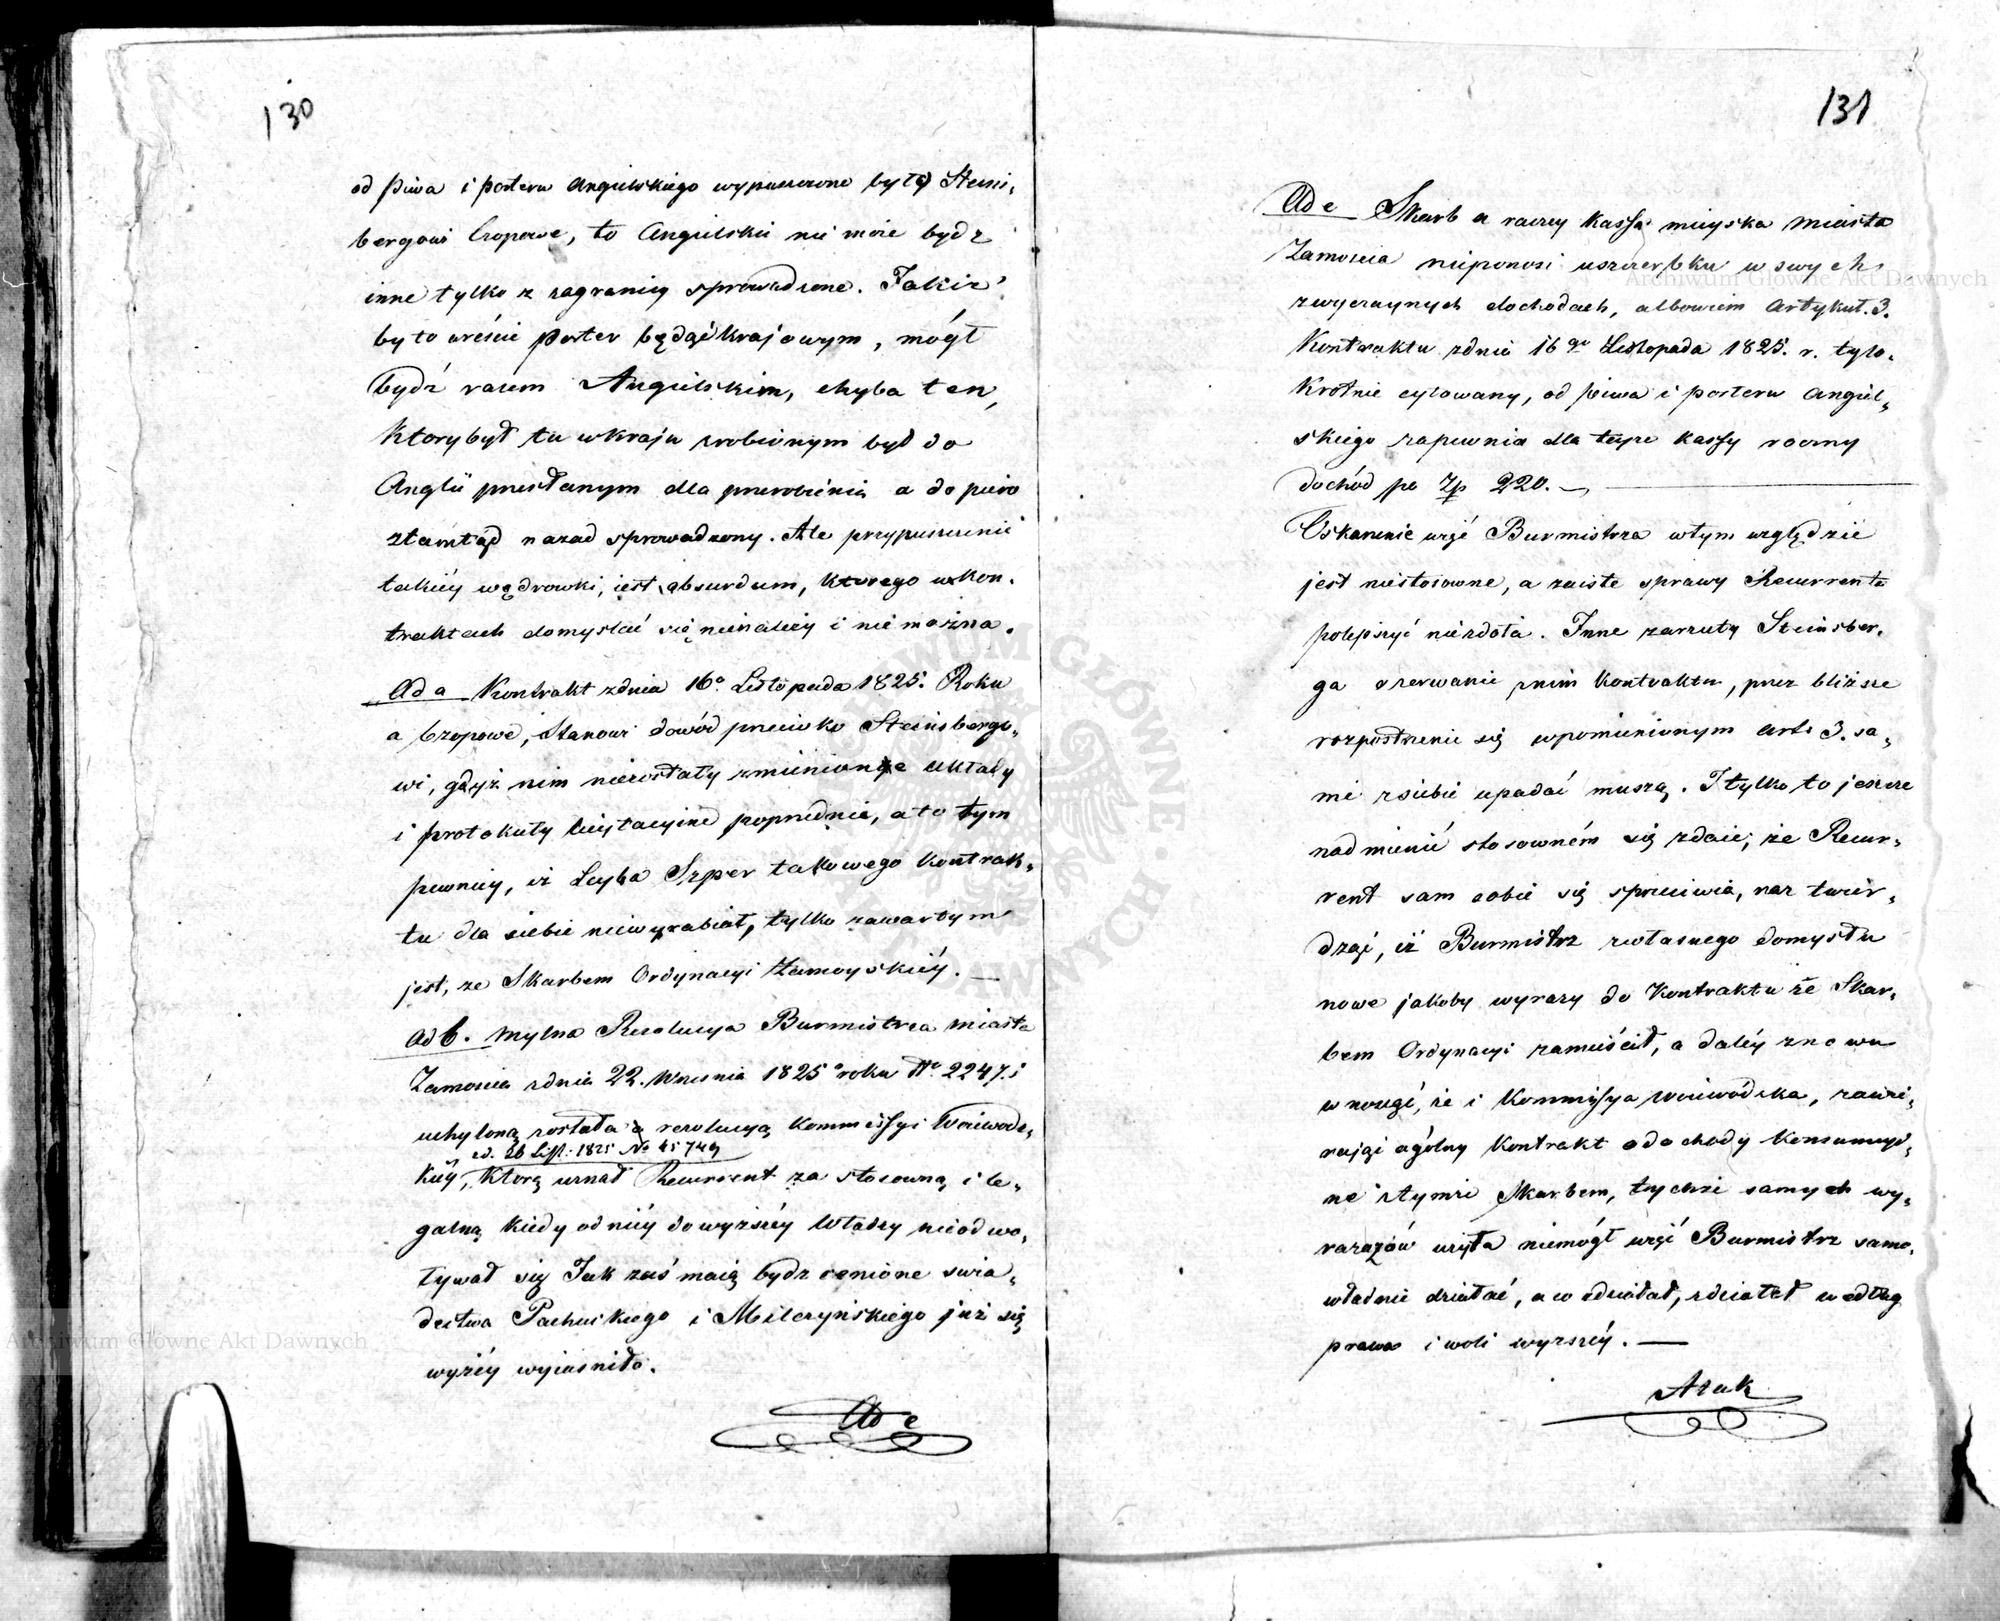 130
od piwa i porteru Angielskiego wypuszczone było Steinsbergowi Czopowe, to Angielskie nie może bydź
inne tylko z zagranicy sprowadzone. Jakiż
by to wreście porter będąc krajowym, mógł
bydź razem Angielskim, chyba ten,
który był tu w kraju zrobionym był do
Anglii przesłanym dla przerobienia a dopiero
ztamtąd nazad sprowadzony. Ale przypuszczenie
takiéy wędrowki, iest absurdum, którego w kon-
traktach domyslać się nienależy i nie można.
Ad a Kontrakt z dnia 16o Listopada 1825. Roku
a Czopowe, stanowi dowód przeciwko Steinsbergo-
wi, gdyż nim niezostały zmienione układy
i protokuły licytacyine poprzednie, a to tym
pewniey, iż Leyba Szper takowego kontrak-
tu dla siebie niewyrabiał, tylko zawartym
jest, ze Skarbem Ordynacyi Zamoyskiéy. —
Ad b. Mylna Rezolucya Burmistrza miasta
Zamościa z dnia 22. Wrzesnia 1825 roku No 2247. i
uchyloną została rezolucyą Kommissyi Woiewodz-
z d. 26 List: 1825 No 45749
kiéy, którą uznał Recurrent za stosowną i le-
galną kiedy od niéy do wyższéy Władzy nieodwo-
ływał się Jak zaś maią bydz cenione swia-
dectwa Pachuckiego i Milczyńskiego już się
wyżéy wyiasniło.
Ad c
131
Ad c Skarb a raczey Kassa mieyska Miasta
Zamoscia nieponosi uszczerbku w swych
zwyczaynych dochodach, albowiem Artykuł. 3.
Kontraktu z dnia 16go Listopada 1825. r. tylo-
krotnie cytowany, od piwa i porteru Angiel-
skiego zapewnia dla teyże kassy roczny
dochód po Zp 220. —
Oskarżenie więc Burmistrza w tym względzie
jest niestosowne, a zaiste sprawy Recurrenta
polepszyć niezdoła. Inne zarzuty Steinsber-
ga o zerwanie z nim kontraktu, przez bliższe
rozpostrzenie się wpomienionym art. 3. sa-
me z siebie upadać muszą. I tylko to jeszcze
nadmienić stosowném się zdaie, że Recur-
rent sam sobie się sprzeciwia, raz twier-
dząc, iż Burmistrz z własnego domysłu
nowe jakoby wyrazy do Kontraktu ze Skar-
bem Ordynacyi zamieścił, a daléy znowu
wnosząc, że i Kommissya Woiewódzka, zawie-
rając ogólny Kontrakt o dochody Konsumcyi-
ne z tymże Skarbem, tychże samych wy-
razów użyła niemógł więc Burmistrz samo-
władnie działać, a w odwiołał, zdziałał według
prawa i woli wyższéy. —
A zak
Archiwum Główne Akt Dawnych
Archiwum Główne Akt Dawnych
ARCHIWUM GŁÓWNE AKT DAWNYCH